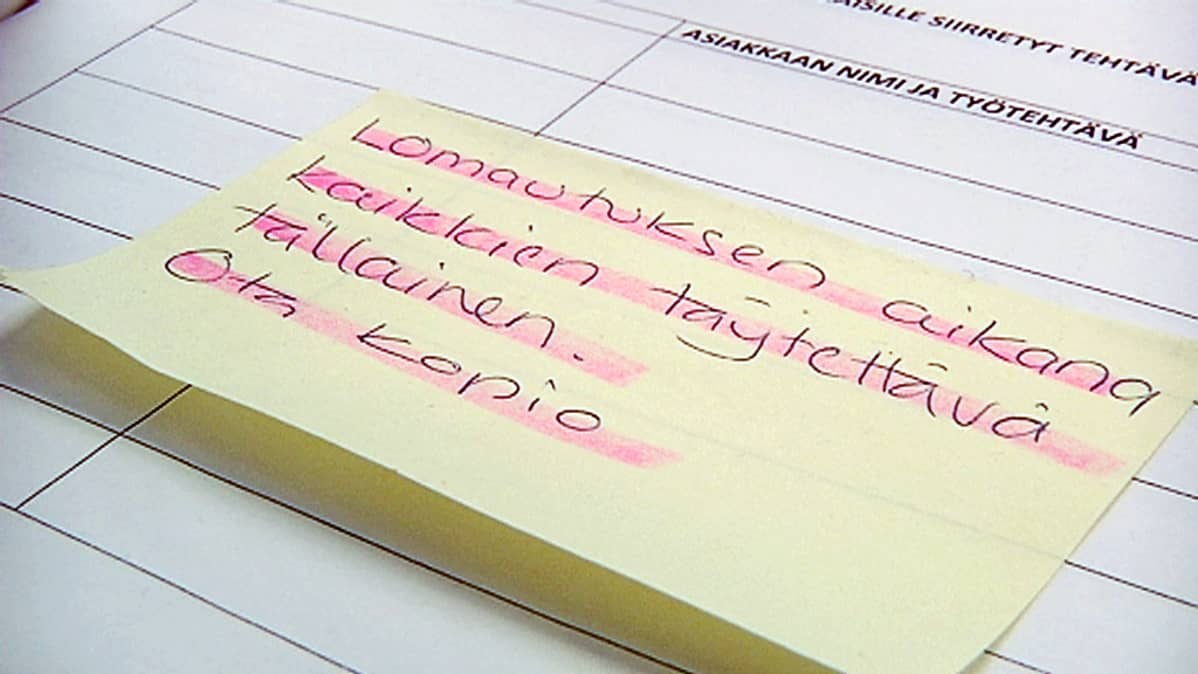 SIIRRETYT TEHTÄVÄ
ASIAKKAAN NIMI JA TYÖTEHTÄVÄ
Lomautuksen aikana
kaikkien täytettävä
tällainen.
Ota kopio